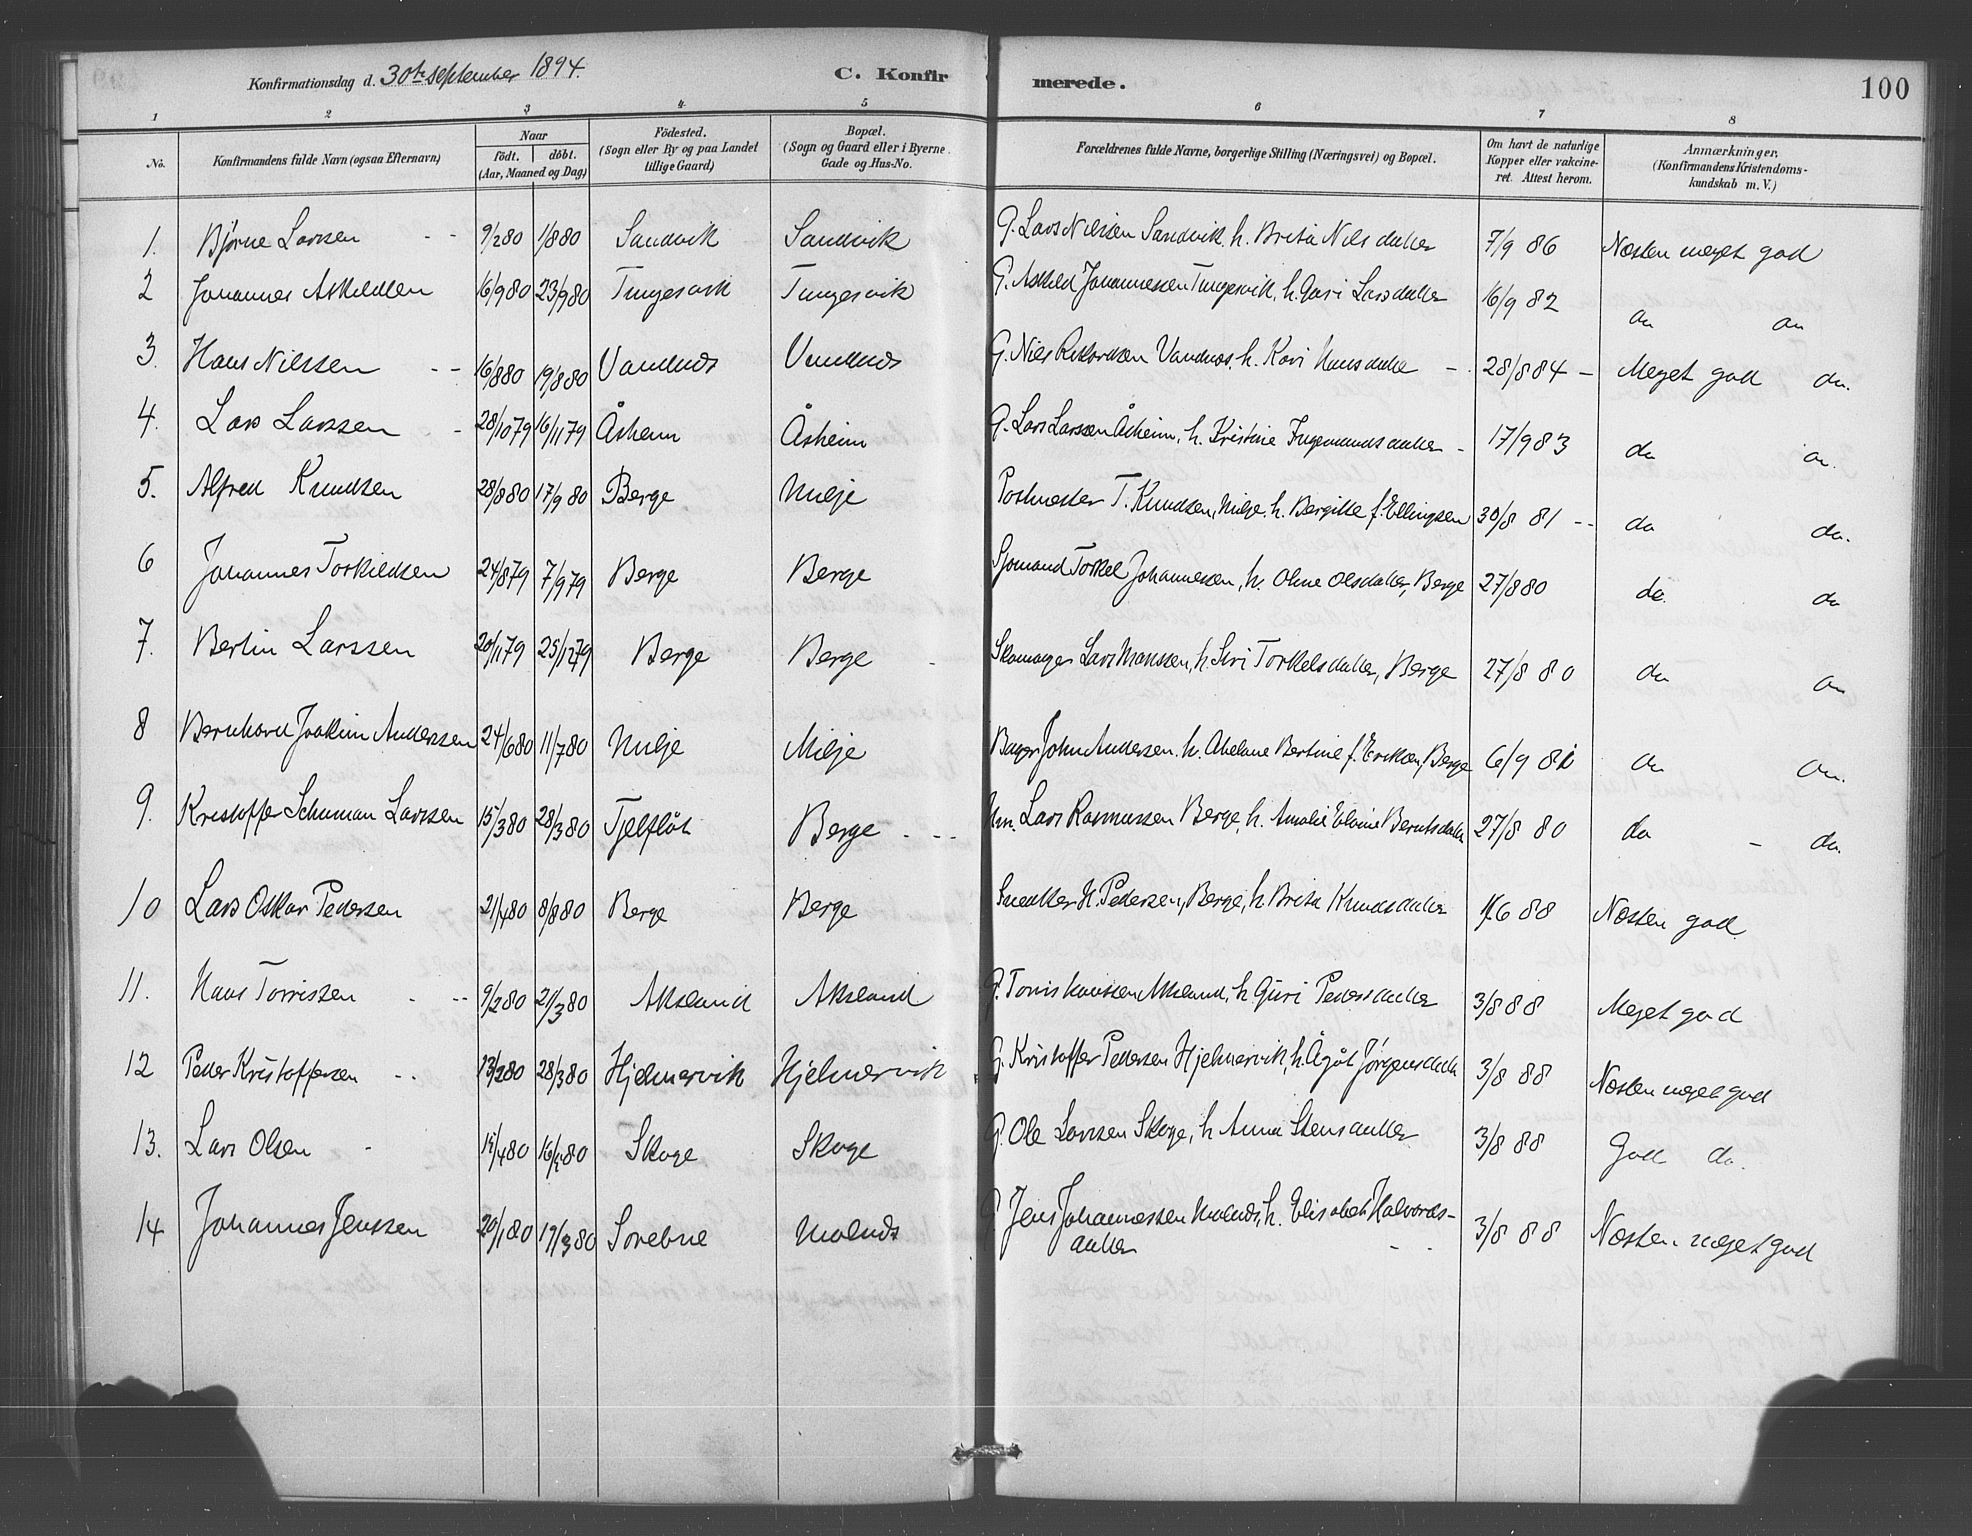 Konfirmationsdag d. 30te september 1894. C. Konfirmerede. 100
1 2 3 4 5 6 7 8
No. Konfirmandens fulde Navn (ogsaa Efternavn) Naar födt. döbt. (Aar, Maaned og Dag) Födested. (Sogn eller By og paa Landet tillige Gaard) Bopæl. (Sogn og Gaard eller i Byerne Gade og Hus-No. Forældrenes fulde Navne, borgerlige Stilling (Næringsvei) og Bopæl. Om havt de naturlige Kopper eller vakcineret. Attest herom. Anmærkninger. (Konfirmandens Kristendomskundskab m. V.)
1. Bjørne Larsen 9/2 80 1/8 80 Sandvik Sandvik G. Lars Nilssen Sandvik, h. Brita Nilsdatter 7/9 86 Næsten meget god
2 Johannes Askildsen 16/9 80 23/9 80 Tungesvik Tungesvik G. Askild Johannessen Tungesvik, h. Guri Larsdatter 16/9 82 do do
3. Hans Nilssen 16/8 80 19/8 80 Vandnøs Vandnøs G. Nils Vandnøs, h. Kari Hansdatter 28/8 84 Meget god do.
4. Lars Larssen 28/10 79 16/11 79 Åsheim Åsheim G. Lars Larssen Åsheim, h. Kristine Ingemundsdatter 17/9 83 do do.
5. Alfred Knudsen 28/8 80 17/9 80 Berge Milje Postmester T. Knudsen, Milje, h. Bergitte f. Ellingsen 30/8 81 do do.
6 Johannes Torkildsen 24/8 79 7/9 79 Berge Berge Sjømand Torkel Johannessen, h. Oline Olsdatter, Berge 27/8 80 do. do
7. Bertin Larssen 20/11 79 25/12 79 Berge Berge Skomager Lars Monssen, h. Siri Torkelsdatter, Berge 27/8 80 do do
8 Bernhard Joakim Andersen 24/6 80 11/7 80 Milje Milje Bager John Andersen, h. Abelone Bertine f. Eriksen, Berge 6/9 81 do do.
9. Kristoffer Schuman Larssen 15/3 80 28/3 80 Tjelflåt Berge Lars Rasmussen Berge, h. Amalie Berntsdatter 27/8 80 do do.
10 Lars Oskar Pedersen 21/4 80 8/8 80 Berge Berge Snedker H. Pedersen, Berge, h. Brita Knudsdatter 88 Næsten god
11. Hans Torrissen 9/2 80 21/3 80 Aksland Aksland G. Torris Hanssen Aksland, h. Guri Pedersdatter 3/8 88 Meget god
12 Peder Kristoffersen 13/2 80 28/3 80 Hjelmervik Hjelmervik G. Kristoffer Pedersen Hjelmervik, h. Ågåt Jørgensdatter 3/8 88 Næsten meget god
13. Lars Olsen 80 80 Skoge Skoge G. Ole Larssen Skoge, h. Anna Stensdatter 3/8 88 God do.
14 Johannes Jenssen 20/1 80 19/3 80 Sørebne Molnøs G. Jens Johannessen Molnøs, h. Elisabet Halvords-
datter 3/8 88 Næsten meget god